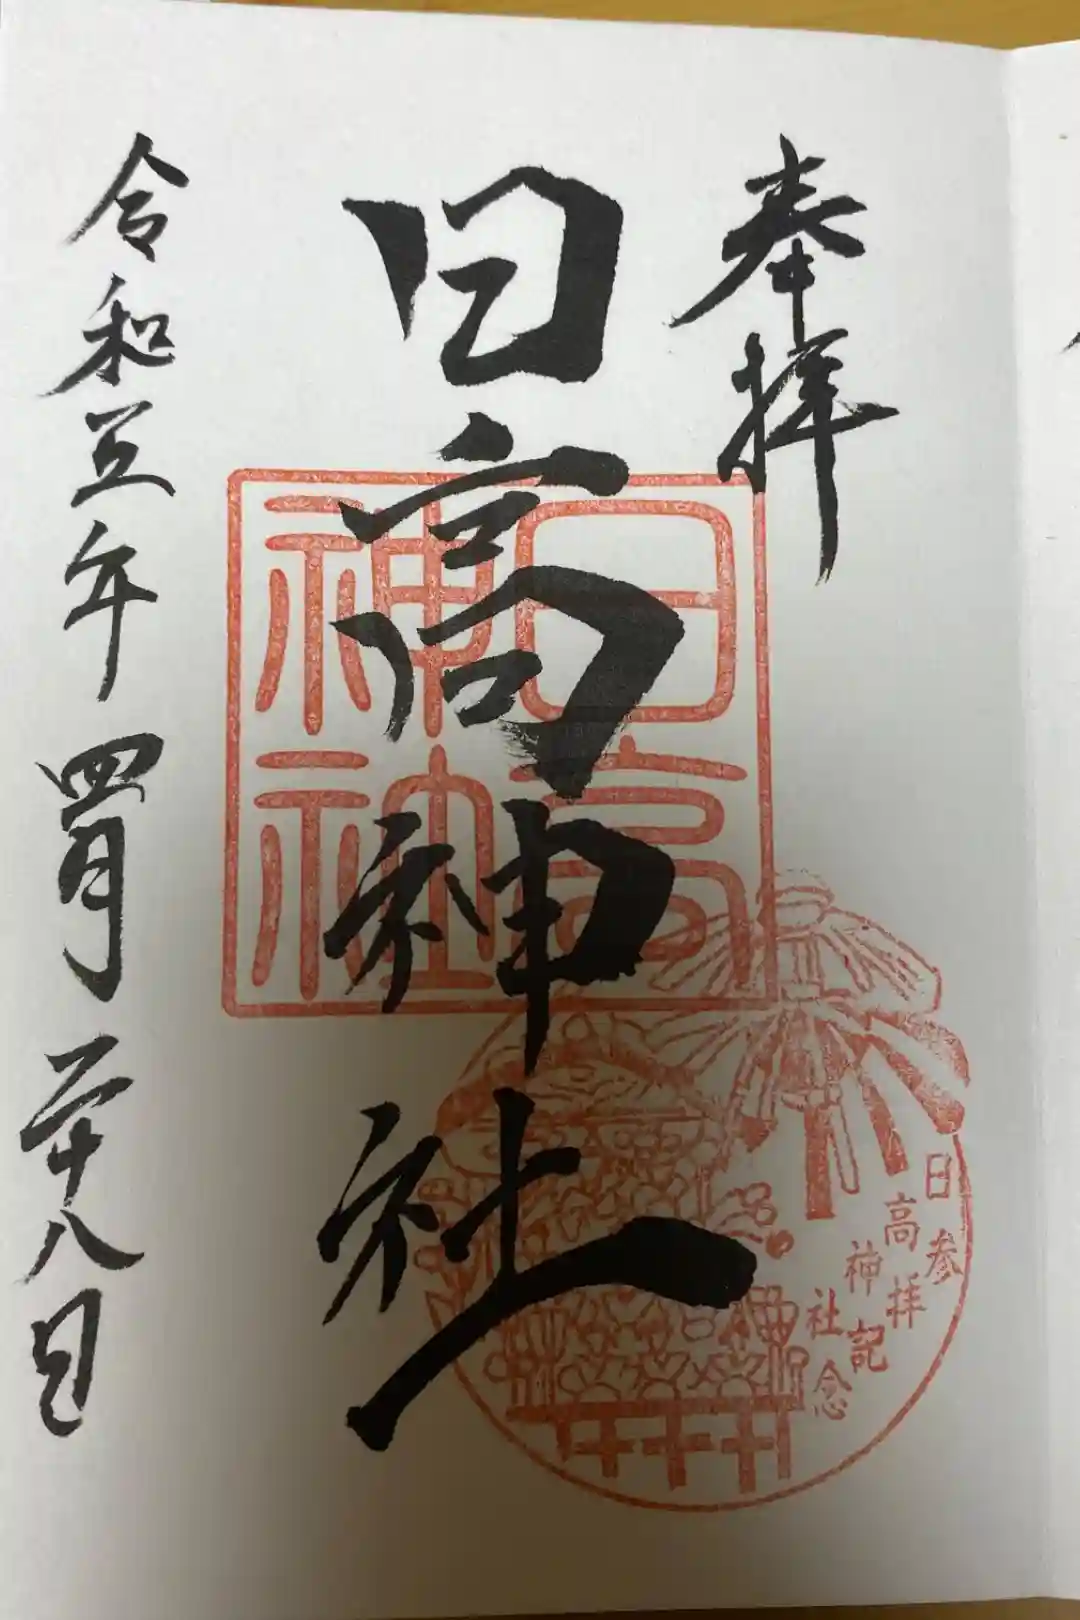 奉拝
日高神社
令和五年四月二十八日
日高神社
日高神社
参拝記念